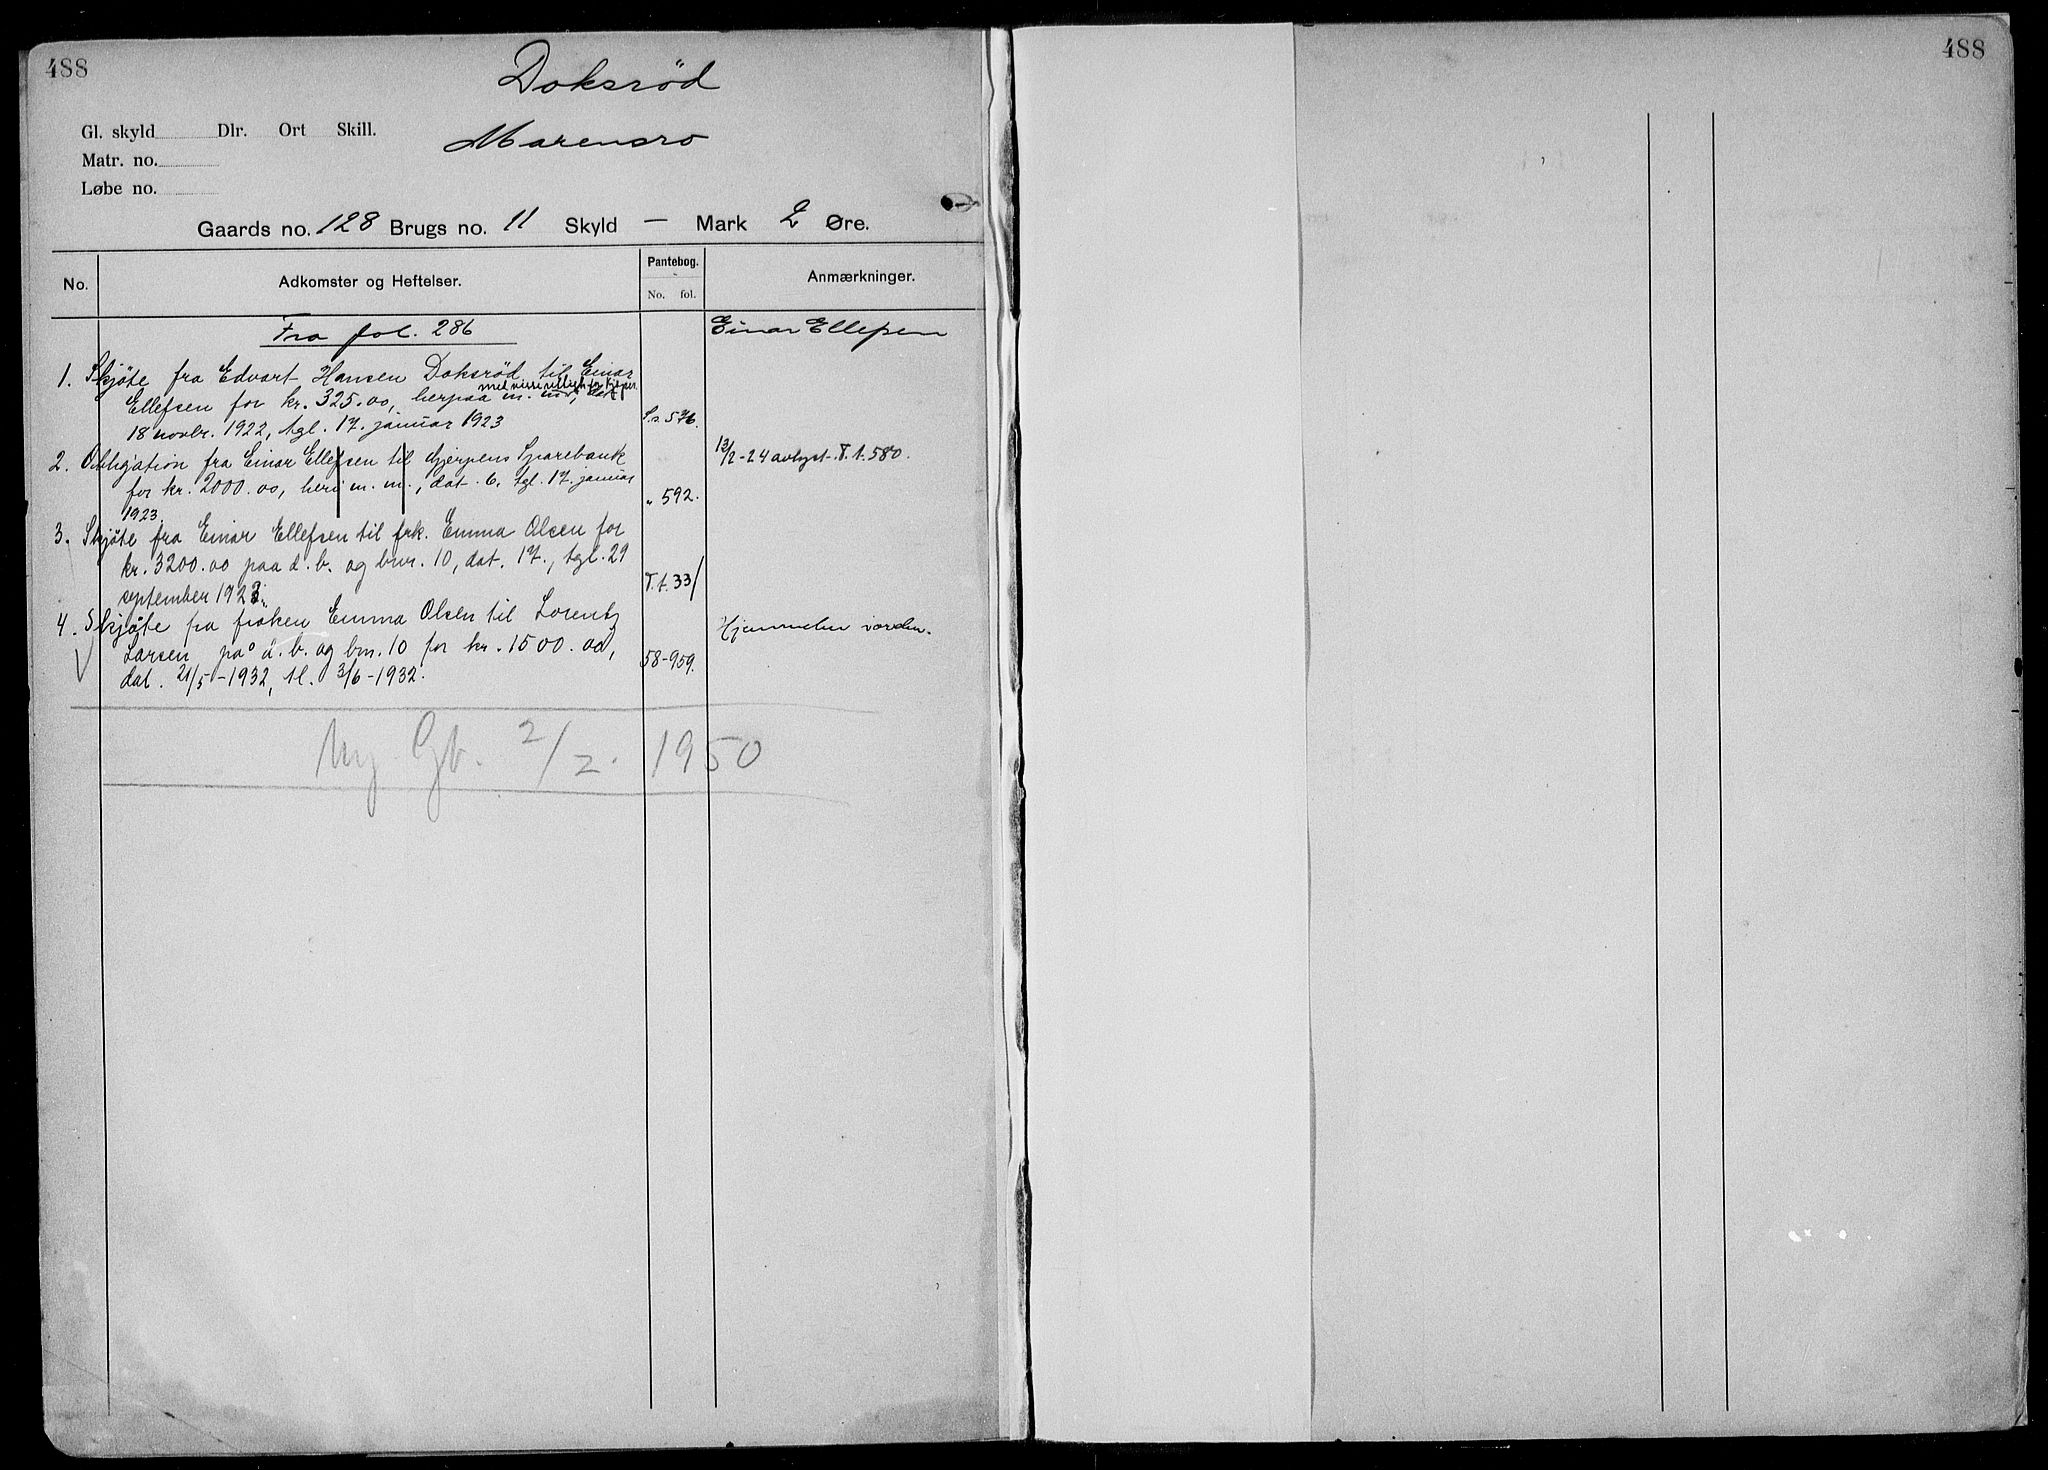 488
Doksrød
Gl. skyld Dlr. Ort Skill.
Marensro
Matr. no.
Løbe no.
Gaards no. 128 Brugs no. 11 Skyld — Mark 2 Øre.
No. Adkomster og Heftelser. Pantebog. No. fol. Anmærkninger.
Fra fol. 286 Einar Ellefsen
1. Skjøte fra Edvart Hansen Doksrød til Einar
Ellefsen for kr. 325.00, herpaa m. m.,
18 novbr. 1922, tgl. 17. januar 1923 S.s. 576.
2. Obligation fra Einar Ellefsen til Gjerpens Sparebank 13/2-24 avlyst. T.t. 580.
for kr. 2000.00, heri m. m., dat. 6. tgl. 17. januar
1923 „ 592.
3. Skjøte fra Einar Ellefsen til frk. Emma Olsen for
kr. 3200.00 paa d. b. og bnr. 10, dat. 17., tgl. 29
september 1923. T.t. 331
4. Skjøte fra frøken Emma Olsen til Lorentz Hjemmelen i orden.
Larsen på d. b. og bnr. 10 for kr. 1500.00,
dat. 21/5-1932, tl. 3/6-1932. 58-959.
Ny Gb. 2/2. 1950
488